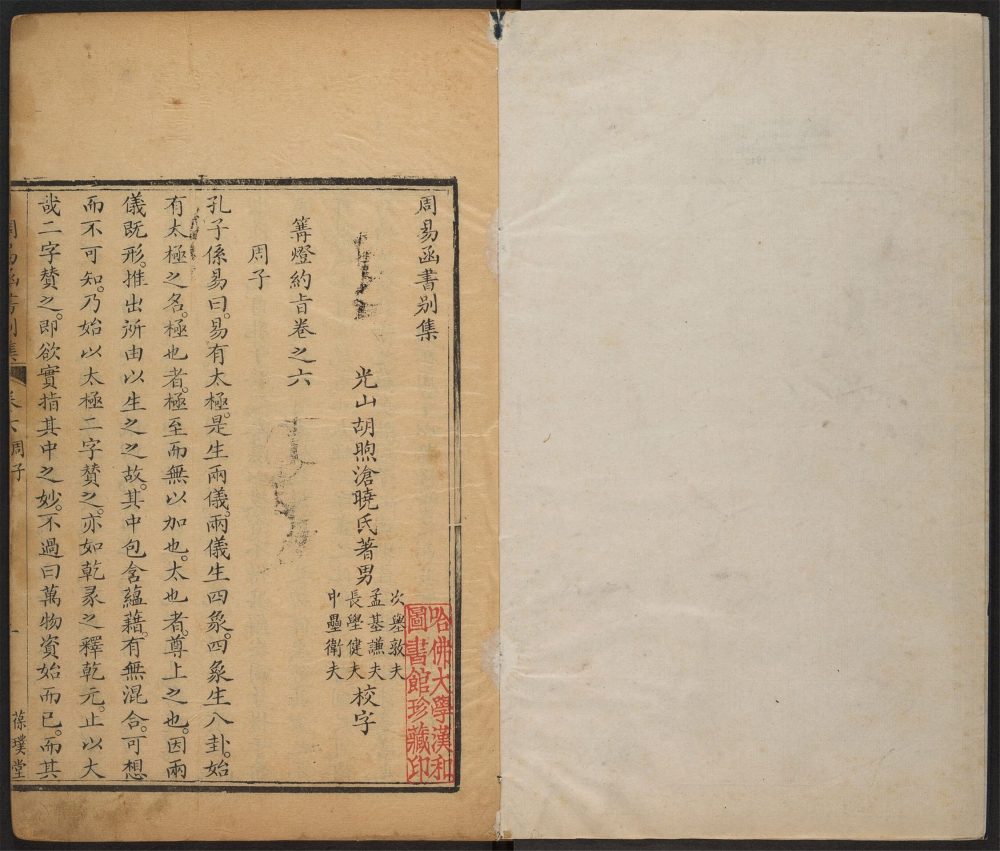 周易函書別集
光山胡煦滄曉氏著男
次㙔敦夫
孟基謙夫
長壆健夫
中壘衛夫
校字
篝燈約旨卷之六
周子
孔子係易曰。易有太極。是生兩儀。兩儀生四象。四象生八卦。始
有太極之名。極也者。極至而無以加也。太也者。尊上之也。因兩
儀既形。推出所由以生之之故。其中包含蘊藉。有無混合。可想
而不可知。乃始以太極二字贊之。亦如乾彖之釋乾元。止以大
哉二字贊之。即欲實指其中之妙。不過曰萬物資始而已。而其
周易函書別集
卷六周子
一
葆璞堂
哈佛大學漢和
圖書館珍藏印